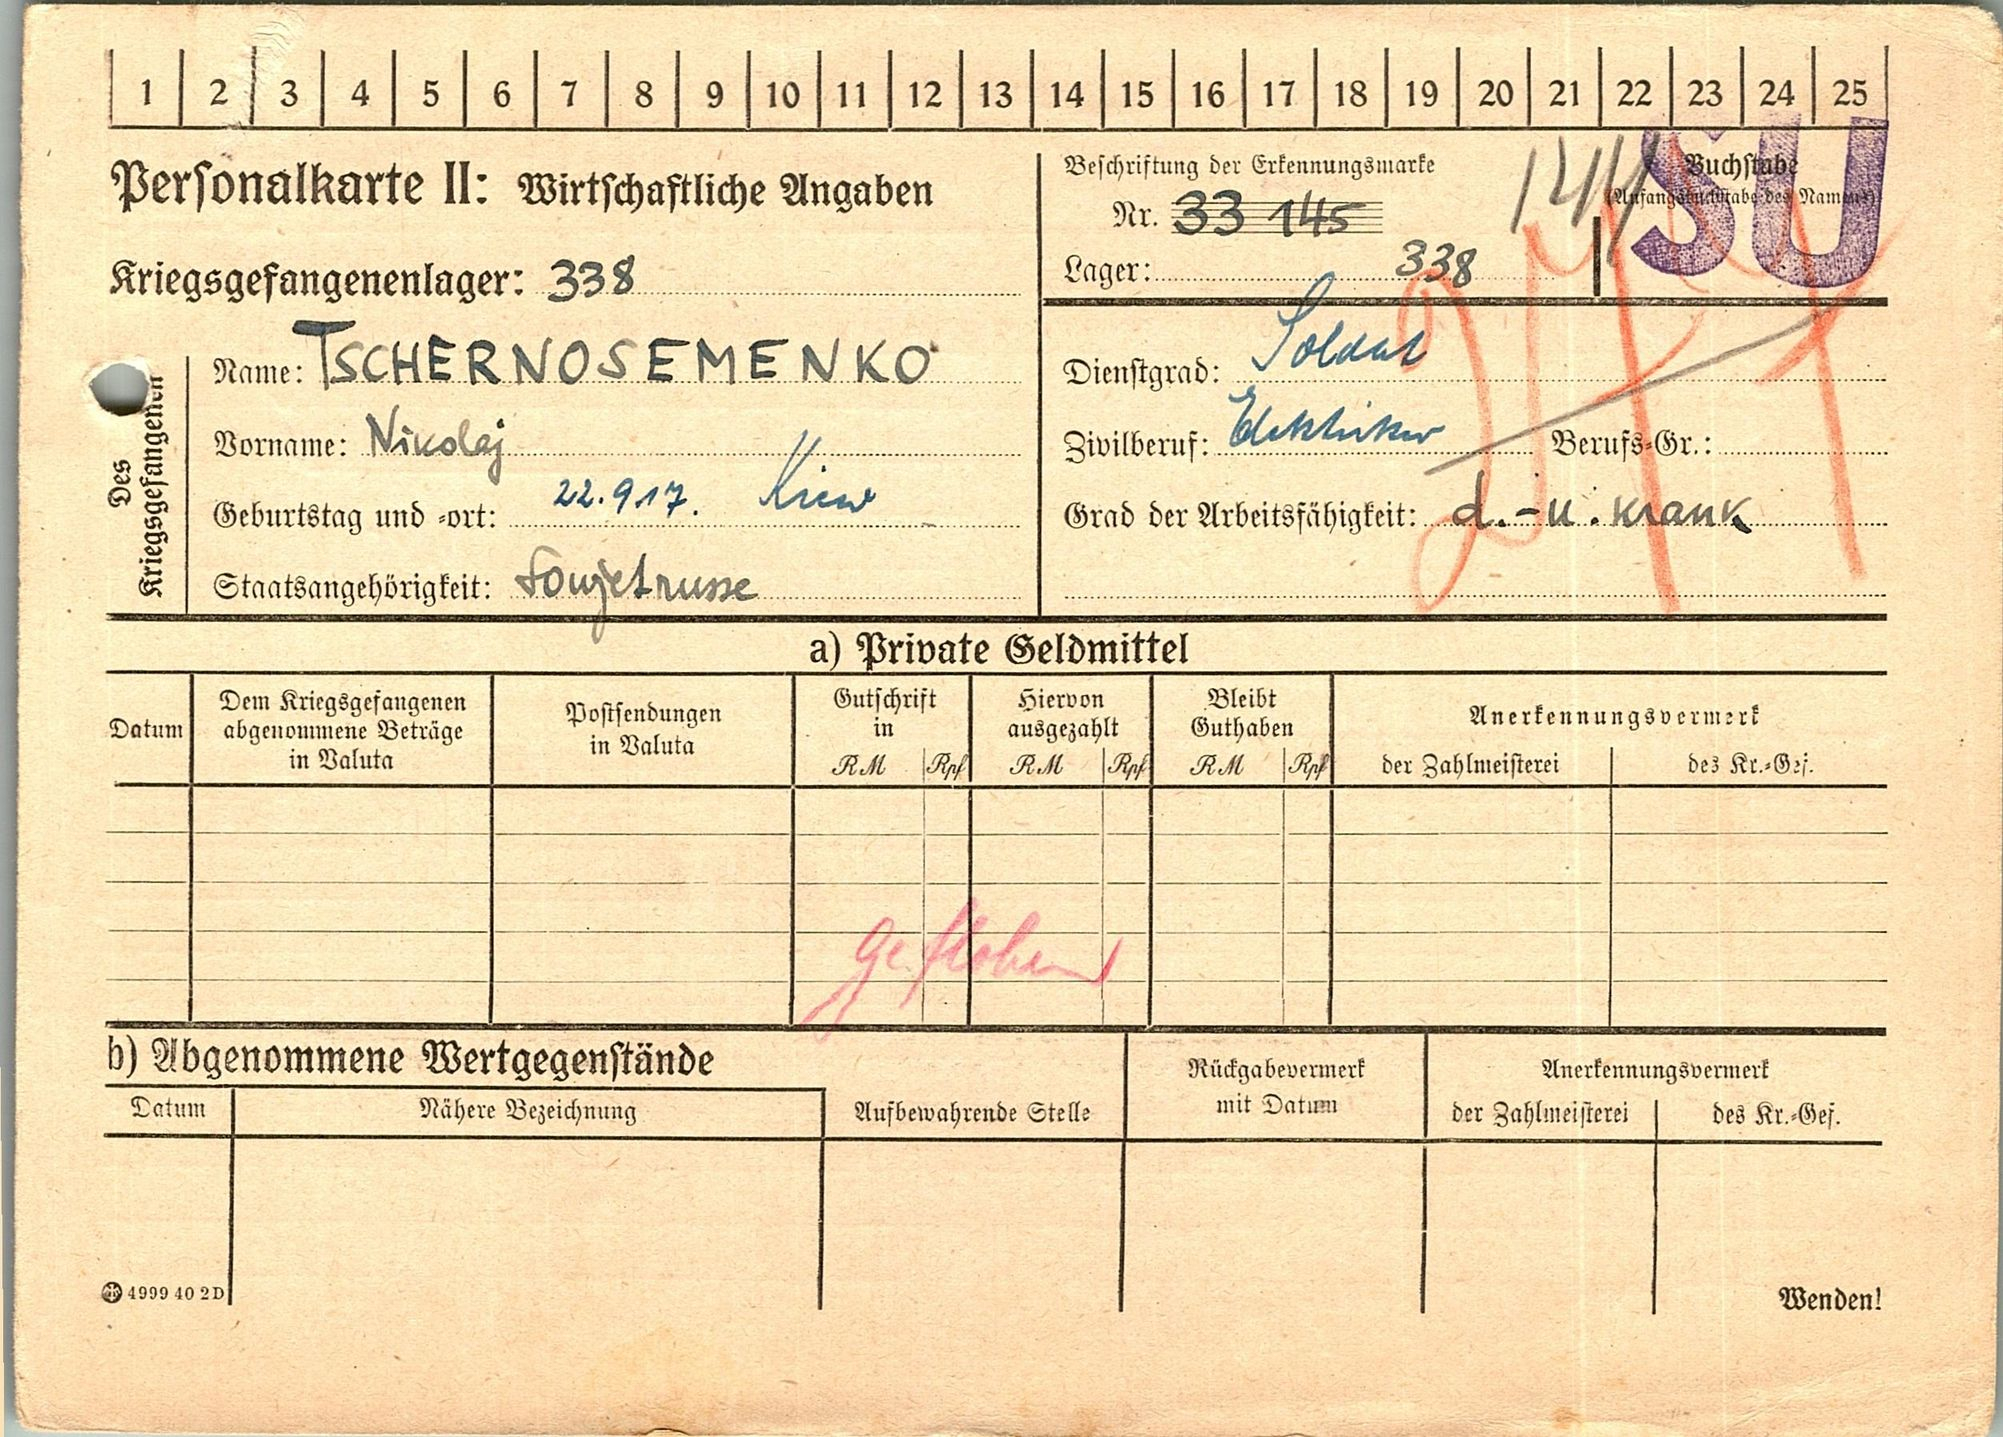 1 2 3 4 5 6 7 8 9 10 11 12 13 14 15 16 17 18 19 20 21 22 23 24 25
Personalkarte II: Wirtschaftliche Angaben
Beschriftung der Erkennungsmarke
Nr. 33 145
Lager: 338
Buchstabe
(Anfangsbuchstabe des Namens)
SU
Kriegsgefangenenlager: 338
Des Kriegsgefangenen
Name: TSCHERNOSEMENKO
Vorname: Nikolaj
Geburtstag und -ort: 22.9.17. Kiew
Staatsangehörigkeit: Sowjetrusse
Dienstgrad: Soldat
Zivilberuf: Elektriker Berufs-Gr.:
Grad der Arbeitsfähigkeit: d.-u. krank
a) Private Geldmittel
Datum
Dem Kriegsgefangenen
abgenommene Beträge
in Valuta
Postsendungen
in Valuta
Gutschrift
in
RM Rpf
Hiervon
ausgezahlt
RM Rpf
Bleibt
Guthaben
RM Rpf
Anerkennungsvermerk
der Zahlmeisterei des Kr.-Gef.
geflohen
b) Abgenommene Wertgegenstände
Datum Nähere Bezeichnung
Aufbewahrende Stelle
Rückgabevermerk
mit Datum
Anerkennungsvermerk
der Zahlmeisterei des Kr.-Gef.
4999 40 2D
Wenden!